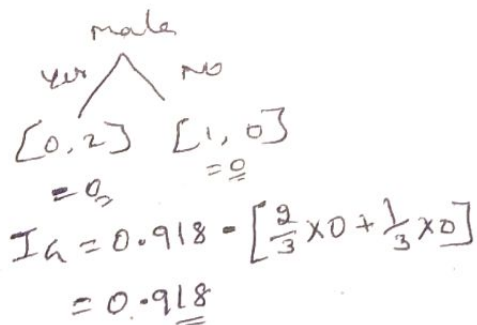 male
Yes No
[0, 2] [1, 0]
= 0 = 0
IG = 0.918 - [2/3 × 0 + 1/3 × 0]
= 0.918